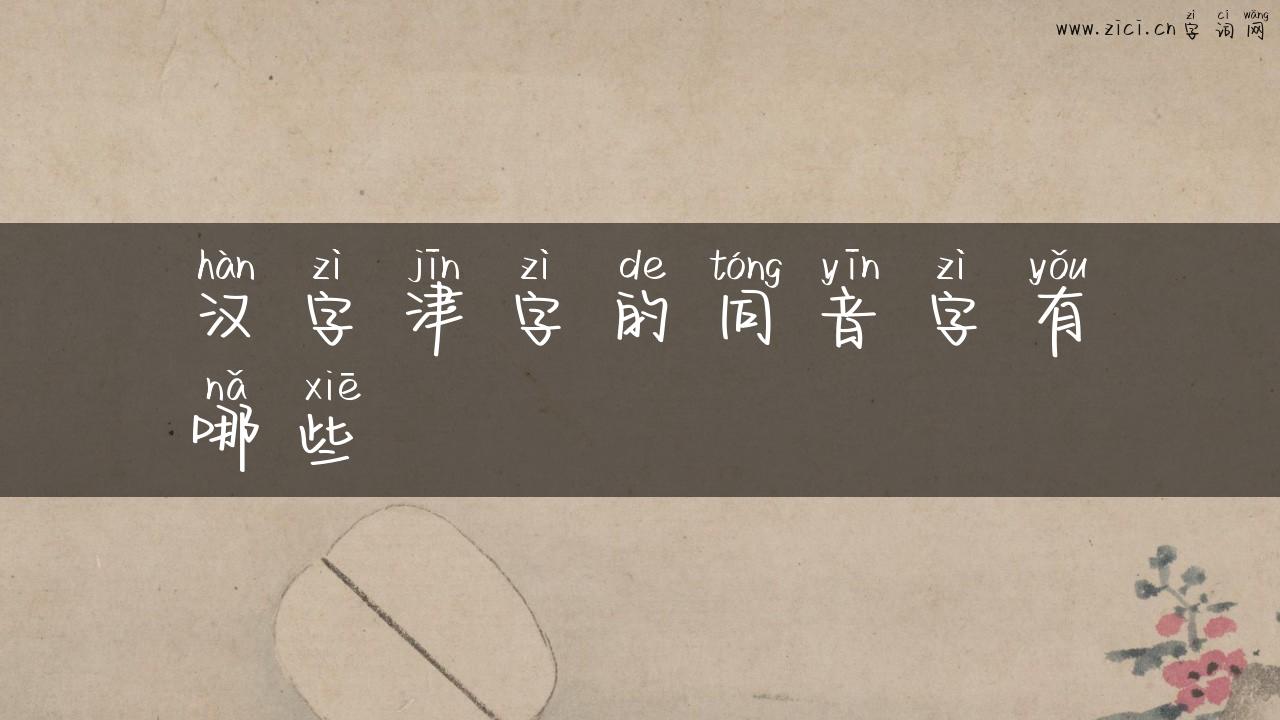 zì cí wǎng
www.zici.cn 字词网
hàn zì jīn zì de tóng yīn zì yǒu
汉字津字的同音字有
nǎ xiē
哪些